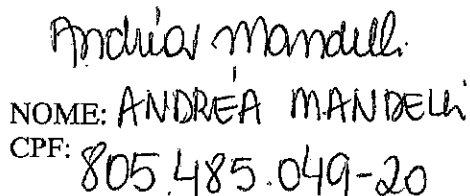 Andréa Mandelli
NOME: ANDRÉA MANDELLI
CPF: 805.485.049-20